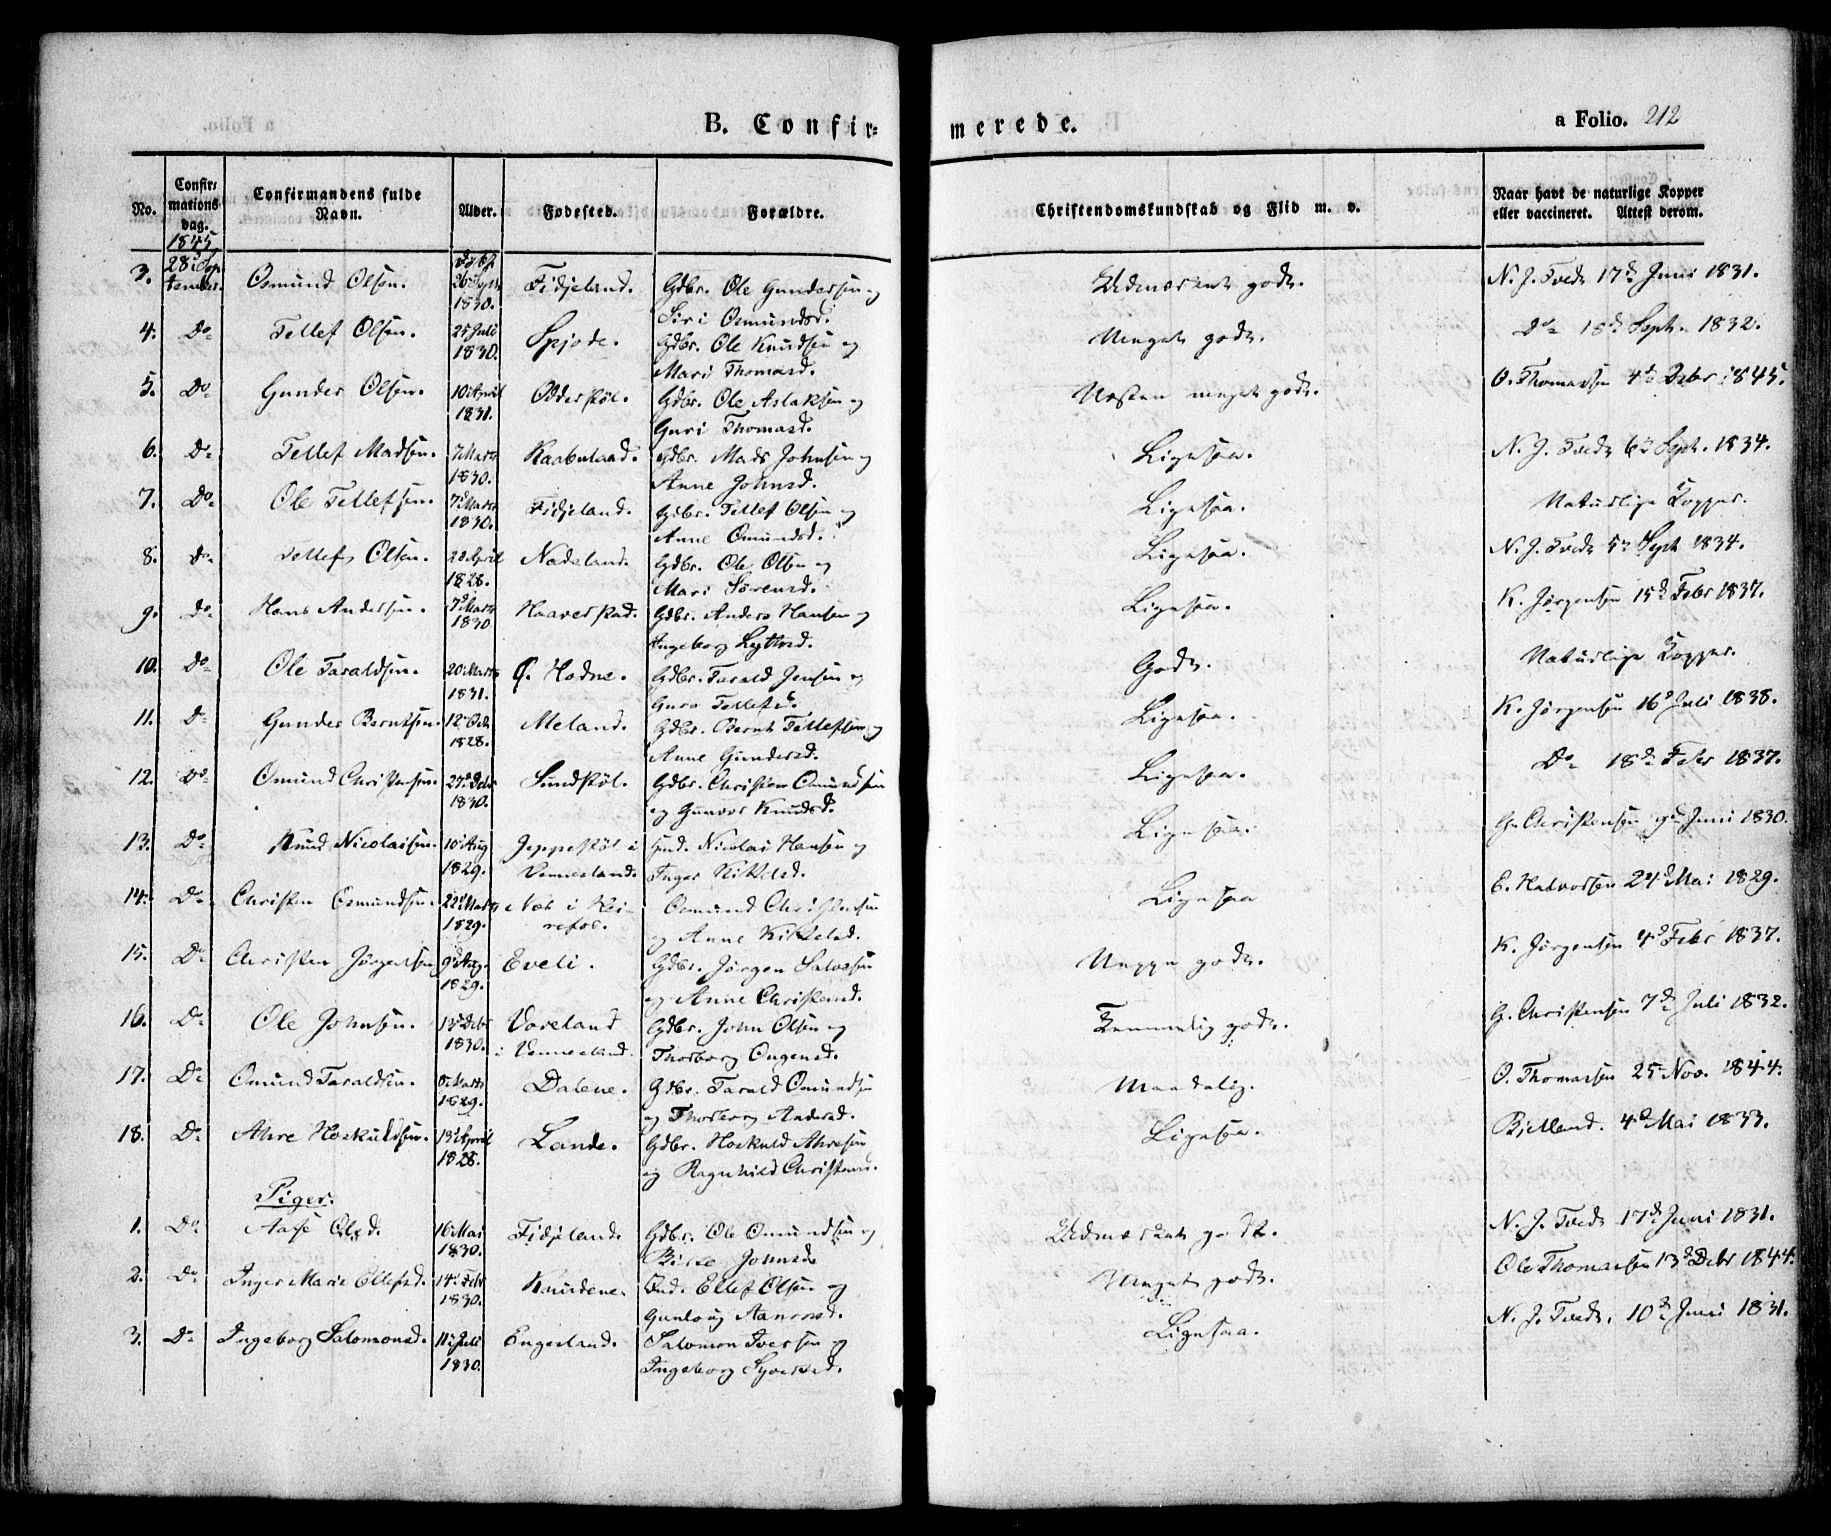 B. Confir-
merede.
a Folio. 212
No.
Confir-
mations
dag.
1845
Confirmandens fulde
Navn.
Alder.
Fødested.
Forældre.
Christendomskundskab og Flid m. v.
Naar havt de naturlige Kopper
eller vaccineret. Attest derom.
3. 28d Sep- Osmund Olsen. 1830. Fidjeland. Gdbr. Ole Gundersen og Udmærket godt. N. J. Tvedt 17d Juni 1831.
tember. Siri Osmundsd.
4. Do Tellef Olsen. 25 Juli Gdbr. Ole Knudsen og Meget godt. Do 18d Septr. 1832.
1830. Mari Thomasd.
5. Do Gunder Olsen. 10 April Gdbr. Ole Aslaksen og Næsten meget godt. O. Thomassen 4d Debr 1845.
1831. Guri Thomasd.
6. Do Tellef Madsen. 7 Marts Gdbr. Mads Johnsen og Ligesaa. N. J. Tvedt 6d Sept. 1834.
1830. Anne Johnsd.
7. Do Ole Tellefsen. 7 Marts Fidjeland. Gdbr. Tellef Olsen og Ligesaa. Naturlige Kopper.
1830. Anne Omundsd.
8. Do Tellef Olsen. 20 April Gdbr. Ole Olsen og Ligesaa. N. J. Tvedt 5d Sept 1834.
1828. Mari Sørensd.
9. Do Hans Andersen. 7 Marts Haaverstad. Gdbr. Anders Hansen og Ligesaa. K. Jørgensen 15d Febr 1837.
1830 Ingeborg
10. Do Ole Taraldsen. 20 Marts Ø. Hodne. Gdbr. Tarald Jensen og Godt. Naturlige Kopper.
1831. Guro
11. Do Gunder Berntsen. 12 Meland. Gdbr. Bernt Tellefsen og Ligesaa. K. Jørgensen 16d Juli 1838.
1828. Anne Gundersd.
12. Do Omund Christensen. 27d Debr Sundstøl. Gdbr. Christen Omundsen Ligesaa. Do 18d Febr 1837.
1830. og Gunvor Knudsd.
13. Do Knud Nicolaisen. 10 Aug Jeppestøl i Nicolai Hansen og Ligesaa. G. Christensen 9d Juni 1830.
1829. Vennesland. Inger Kittelsd.
14. Do Christen Osmundsen. 22d Marts Næs i Rei- Osmund Christensen Ligesaa E. Halvorsen 24d Mai 1829.
1829. refos. og Anne Kittelsd.
15. Do Christen Jørgensen 9d Aug. Eveli. Gdbr. Jørgen Salvesen Noget godt. K. Jørgensen 4d Febr 1837.
1829. og Anne Christensd.
16. Do Ole Johnsen. 13d Debr Vareland Gdbr. John Olsen og Temmelig godt. G. Christensen 7d Juli 1832.
1830. i Vennesland. Thorborg
17. Do Omund Taraldsen. Marts Dalene. Gdbr. Tarald Omundsen Maadelig. O. Thomassen 25d Nov. 1844.
1829. og Thorborg Andersd.
18. Do Ahre Hoskuldsen. 13d April Lande. Gdbr. Hoskuld Ahresen Ligesaa. Bjelland. 4d Mai 1833.
1828. og Ragnhild Christensd.
Piger.
1. Do Aase Olsd. 16 Mai Fidjeland. Gdbr. Ole Omundsen og Udmærket godt. N. J. Tvedt 17d Juni 1831.
1830. Johnsd.
2. Do Inger Marie Ellefsd. 14d Febr Knudene. Ellef Olsen og Meget godt. Ole Thomassen 13d Debr 1844.
1830. Gunloug
3. Do Ingeborg Salomonsd. 11 Juli Engesland. Salomon Iversen og Ligesaa. N. J. Tvedt. 10d Juni 1831.
1830. Ingeborg